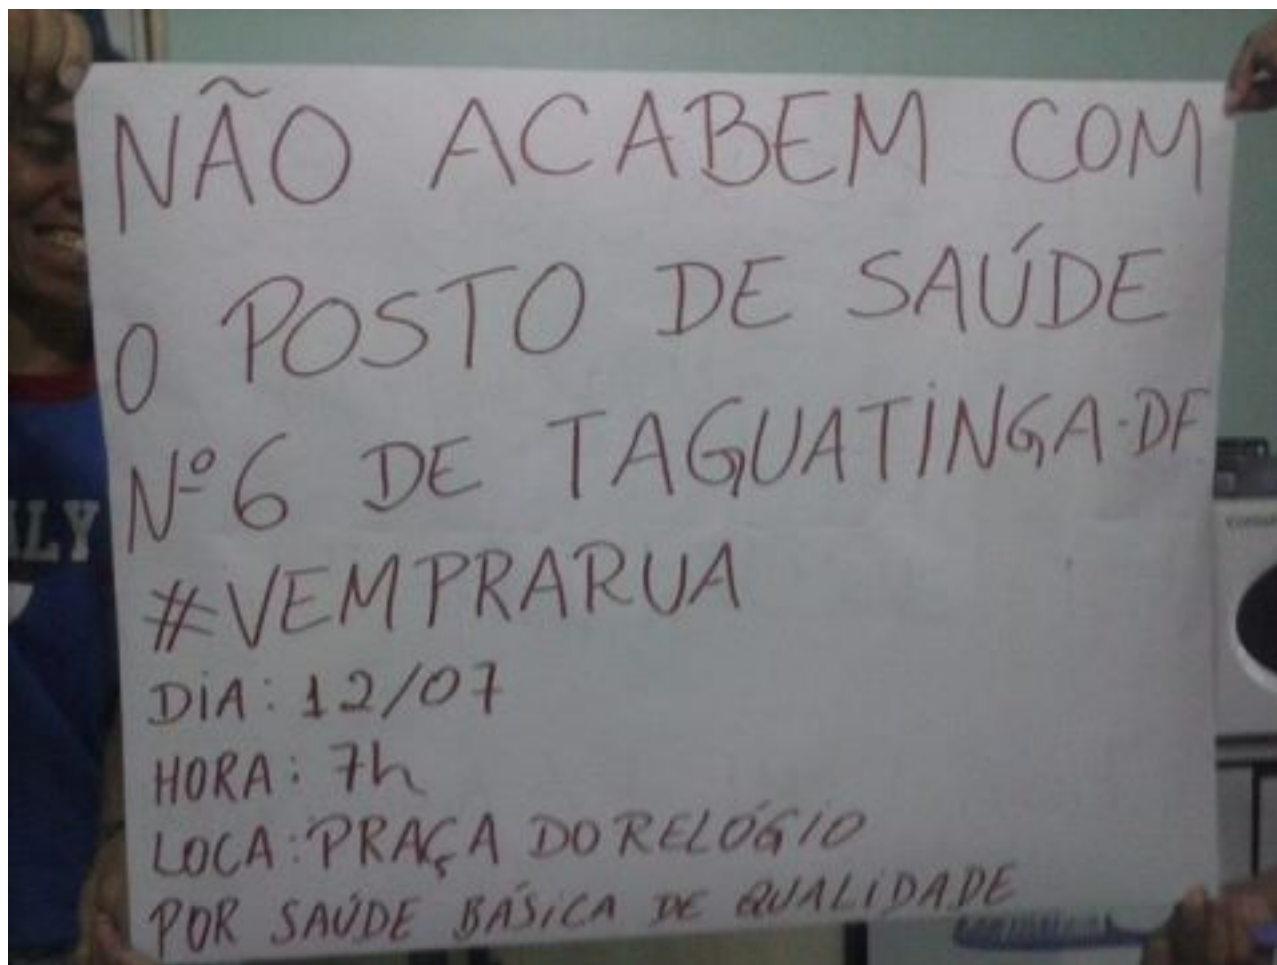 NÃO ACABEM COM
O POSTO DE SAÚDE
Nº6 DE TAGUATINGA-DF
#VEMPRARUA
DIA: 12/07
HORA: 7h
LOCA: PRAÇA DO RELÓGIO
POR SAÚDE BÁSICA DE QUALIDADE
LY